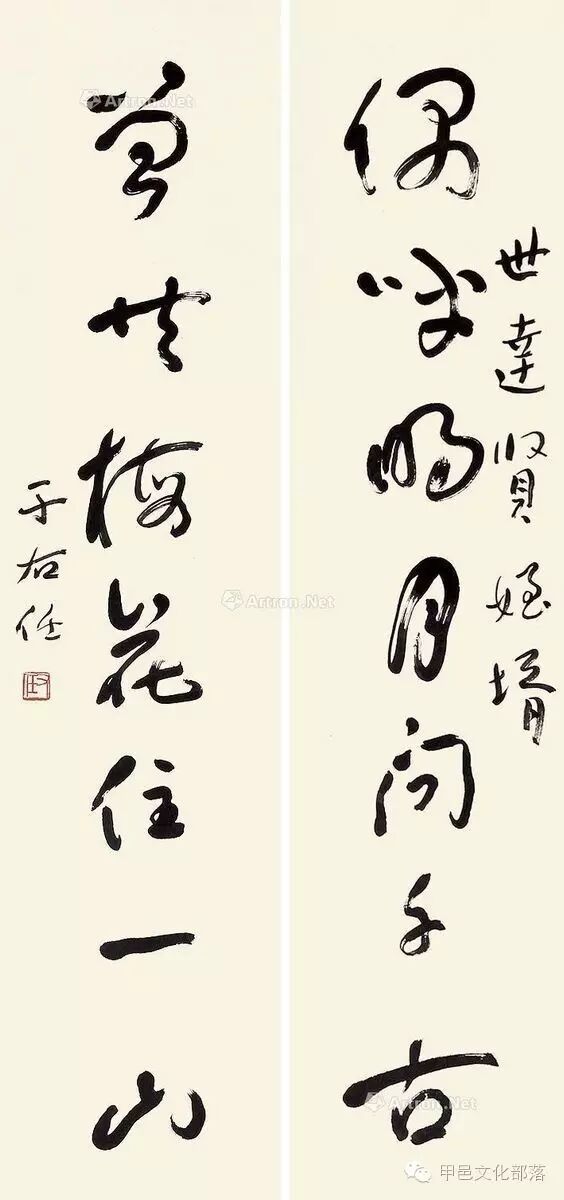 世達賢姪壻
偶呼明月問千古
曾共梅花住一山
于右任
Artron.Net
Artron.Net
Artron.Net
甲邑文化部落